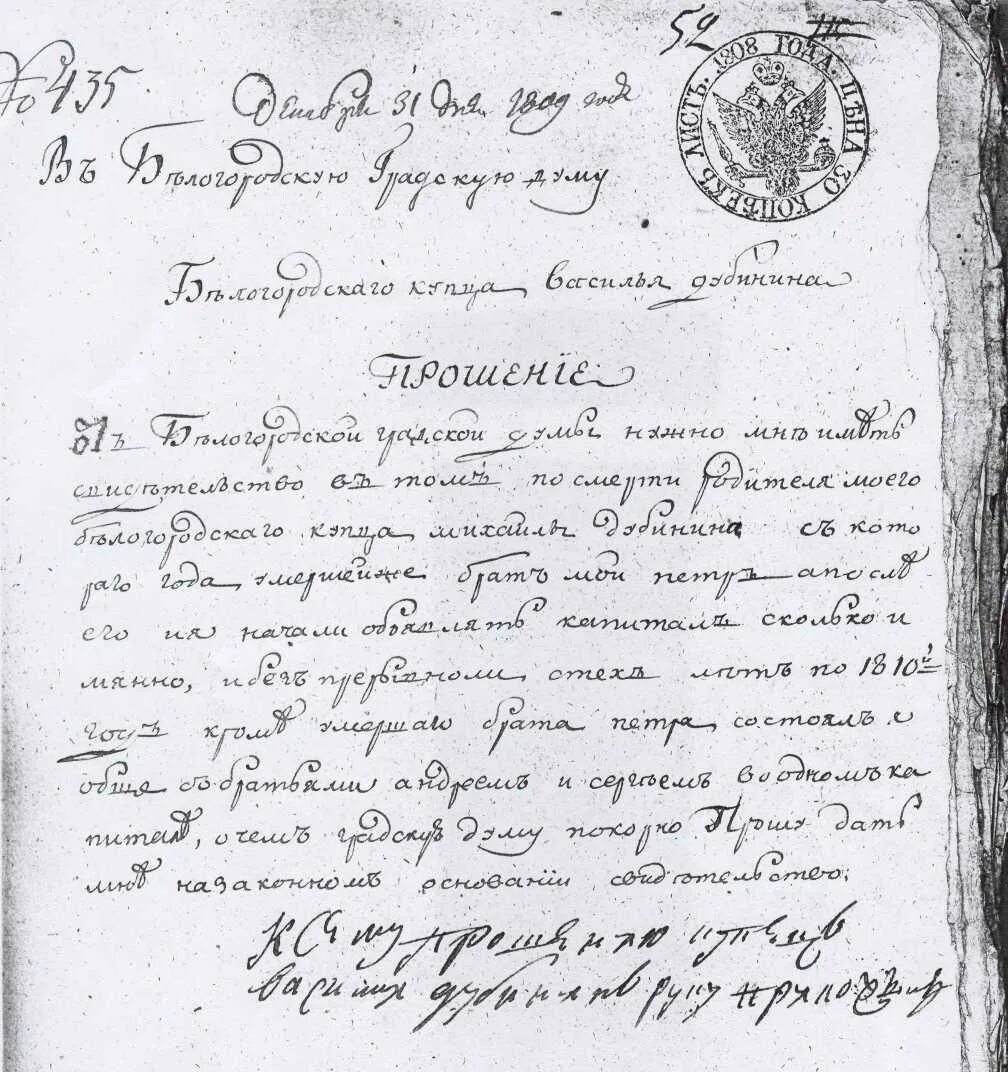 52
№ 435
ЛИСТЪ. 1808 ГОДА. ЦѢНА 30 КОПѢЕКЪ
Декабря 31 дня 1809 года
Въ Бѣлогородскую Градскую думу
Бѣлогородскаго купца василья дубинина
ПРОШЕНІЕ
Бѣлогородской градской думы нужно мнѣ имѣть
свидѣтельство въ томъ по смерти родителя моего
бѣлогородскаго купца михайлы дубинина съ кото
раго года умершейже братъ мой петръ а послѣ
его ия начали объявлять капиталъ сколько и
мянно, ибезъ прерывноли стехъ лѣтъ по 1810й
годъ кромѣ умершаго брата петра состоялъ я
обще събратьями андреемъ и сергѣемъ воодномъ ка
питалѣ, очемъ градскую думу покорно Прошу дать
мнѣ назаконномъ основании свидѣтельство.
К Сему прошению купецъ
василий дубининъ руку приложилъ